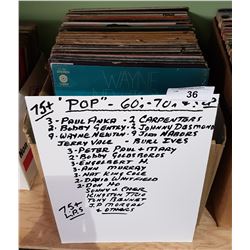 WAYNE
NEWTON
36
75+ "POP" - 60's-70's
3 - PAUL ANKA - 2 CARPENTERS
2 BOBBY GENTRY - 2 JOHNNY DESMOND
9 - WAYNE NEWTON - 9 JIM NABORS
JERRY VALE - BURL IVES
3 - PETER PAUL + MARY
2 BOBBY GOLDSBORO'S
3 - ENGELBERT H.
3 - ANN MURRAY
2 - NAT KING COLE
2 - DAVID WHITFIELD
2 - DON HO
SONNY + CHER
KINGSTON TRIO
TONY BENNET
J.P MORGAN
+ OTHERS
75+
L.P.S